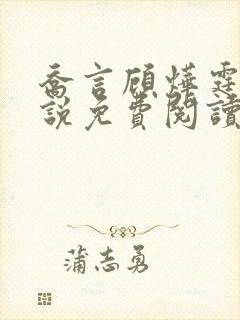 喬言顧燁霆
說免費閱讀
蒲志勇